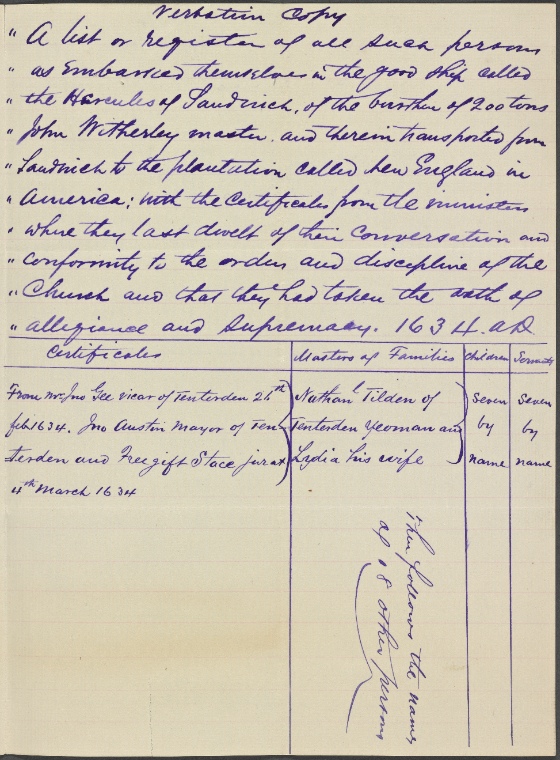 Verbatim Copy
" A list or register of all such persons
" as Embarked themselves in the good ship called
" the Hercules of Sandwich, of the burthen of 200 tons
" John Witherley master, and therein transported from
" Sandwich to the plantation called New England in
" America; with the Certificates from the ministers
" where they last dwelt of their Conversation and
" Conformity to the order and discipline of the
" Church and that they had taken the oath of
" allegiance and Supremacy. 1634. AD
Certificates | Masters of Families | Children | Servants
From Mr. Jno Gee vicar of Tenterden 26th | Nathanl Tilden of | Seven | Seven
feb 1634. Jno Austin Mayor of Ten- | Tenterden Yeoman and | by | by
terden and Freegift Stace jurat | Lydia his wife | name | name
4th March 1634
Then follows the names
of 18 other persons